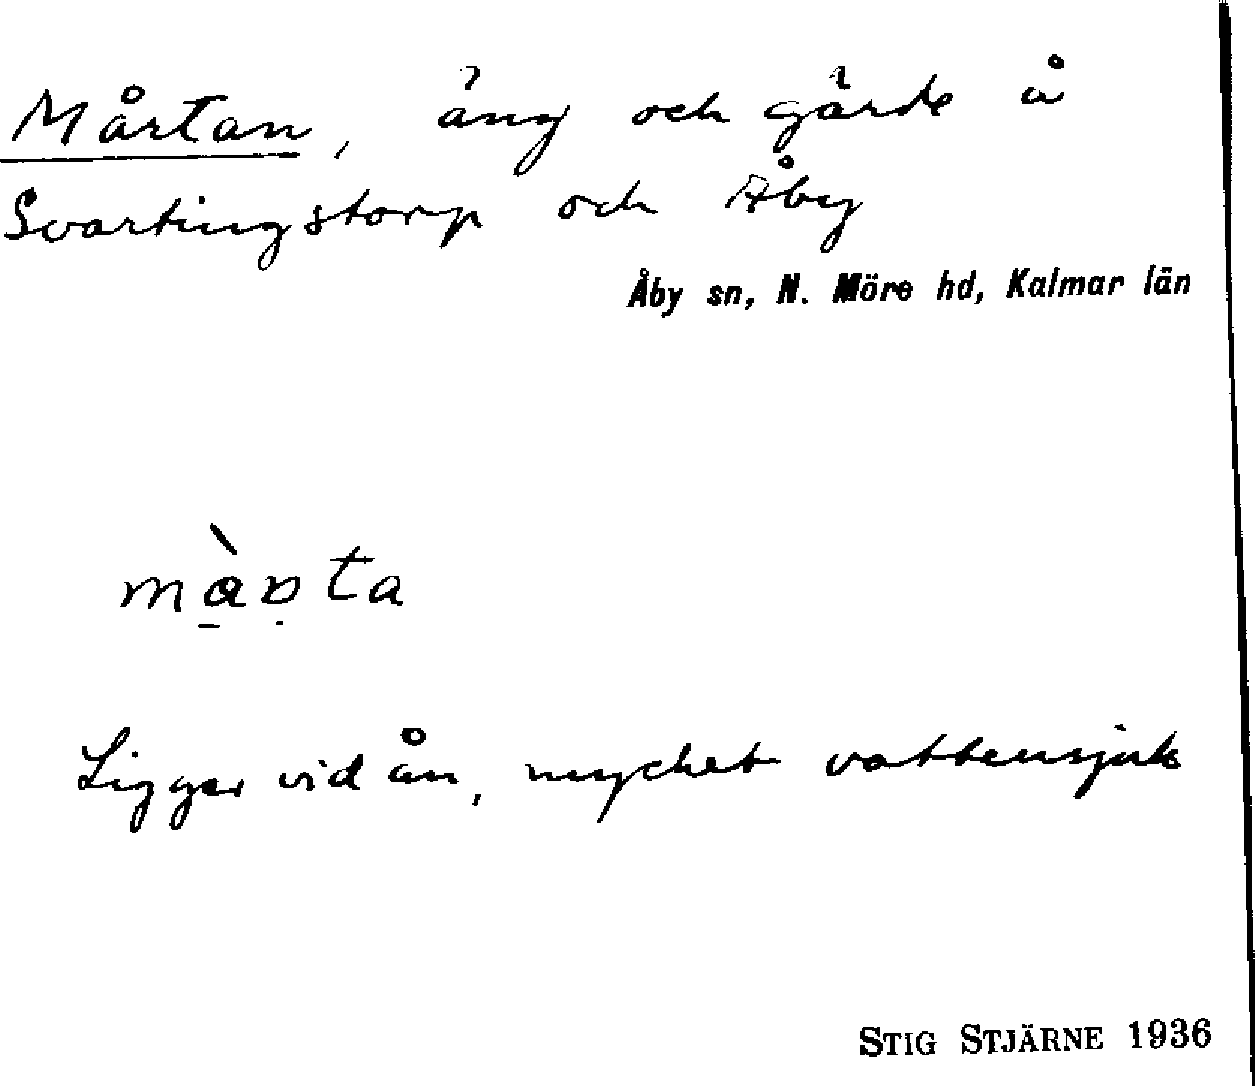 Mårtan, äng och gärde å
Svartingstorp och Åby
Åby sn, N. Möre hd, Kalmar län
Ligger vid ån, mycket vattensjuk
STIG STJÄRNE 1936